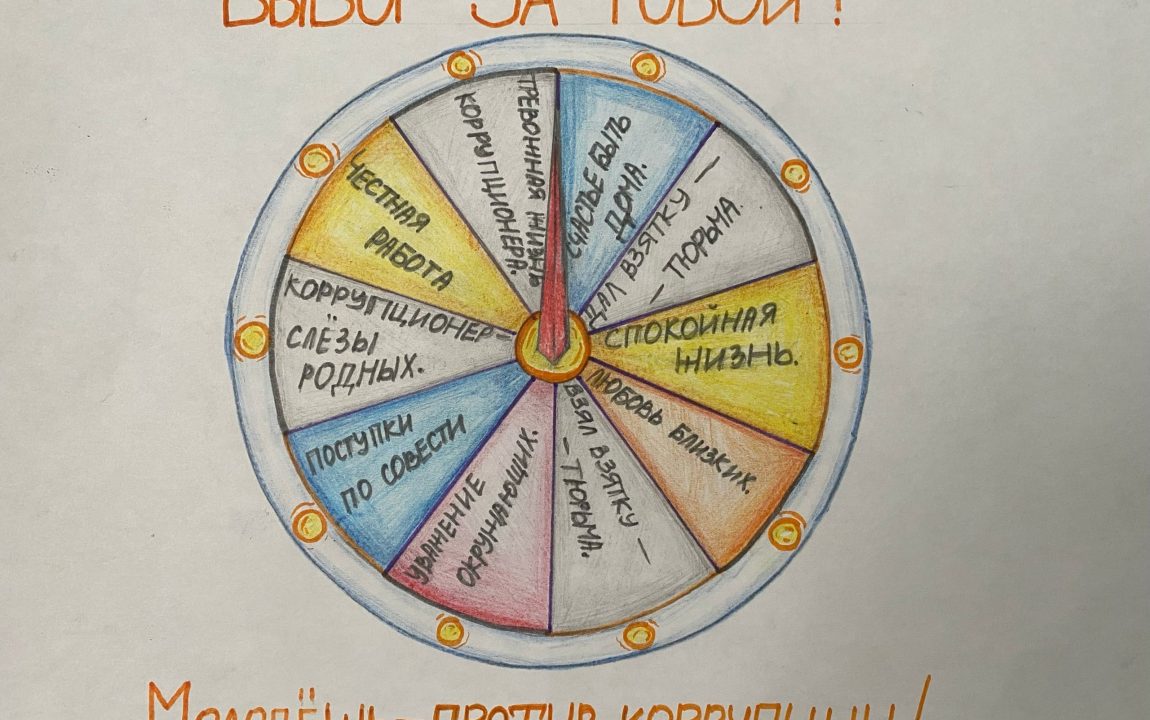 ВЫБОР ЗА ТОБОЙ!
СЧАСТЬЕ БЫТЬ
ДОМА.
ДАЛ ВЗЯТКУ —
— ТЮРЬМА.
СПОКОЙНАЯ
ЖИЗНЬ.
ЛЮБОВЬ БЛИЗКИХ.
ВЗЯЛ ВЗЯТКУ —
— ТЮРЬМА.
УВАЖЕНИЕ
ОКРУЖАЮЩИХ.
ПОСТУПКИ
ПО СОВЕСТИ
КОРРУПЦИОНЕР-
СЛЁЗЫ
РОДНЫХ.
ЧЕСТНАЯ
РАБОТА
ТРЕВОЖНАЯ ЖИЗНЬ
КОРРУПЦИОНЕРА.
МОЛОДЁЖЬ - ПРОТИВ КОРРУПЦИИ!